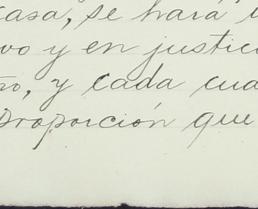 casa, se hará
vo y en justic
no, y cada cua
proporción que